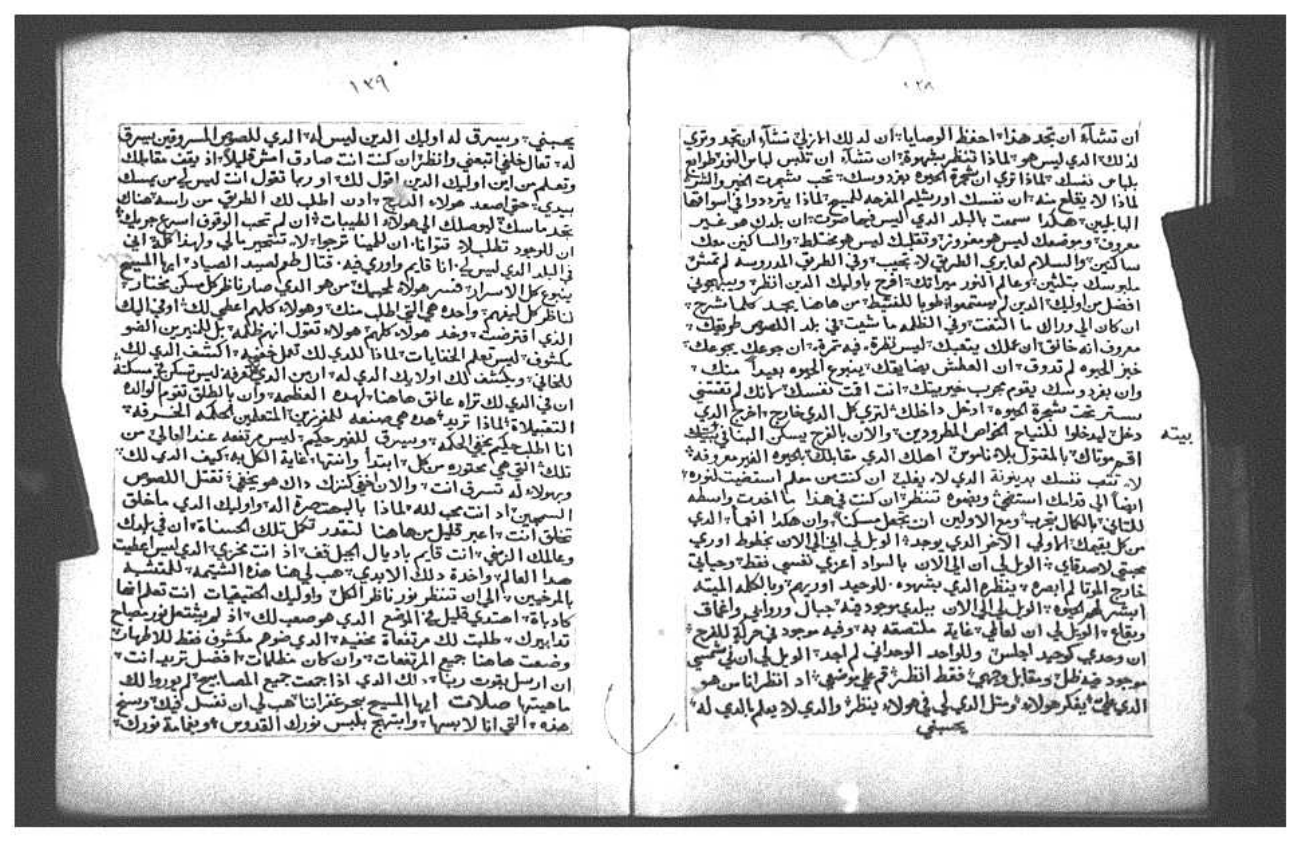 ١٣٨
ان تشآء ان تجد هذا احفظ الوصايا ان لدلك تشآء ان تجد وتري
لذلك الدي ليس هو لماذا تنظر بشهوة ان تشآء ان تلبس لباس النور
بلباس نفسك لماذا تري ان شجرة الحيوه بفردوسك تحب شجرت الخير والشر
لماذا لا يقلع منه ان نفسك اورشليم المفرحه للمسيح لماذا يترددوا في اسواقها
البابليين هكدا سمعت بالبلد الدي ليس فيها صوت ان بلدك هو غير
معروف وموضعك ليس هو مفروز وتقلبك ليس هو مختلط والساكنين معك
ساكتين والسلام لعابري الطريق لا تجيب وفي الطريق المدروسه لم تمش
ملبوسك وعالم النور ميراتك افرح باوليك الدين انظر
افضل من اوليك الدين لم يستمعوا طوبا من هاهنا يجد كلما نشرح
ان كان الي وراك ما التفت وفي الظلمه ما شيت في بلد اللصوص طريقك
معروف انه خانق ان عملك يتعبك ليس نظرة فيه تمرة ان جوعك يجوعك
خبز الحيوه لم تدوق ان العطش يضايقك ينبوع الحيوه بعيداً منك
وان بفردوسك يقوم مجرب خيريتك انت اقت نفسك لم تقتني
ستر تحت شجرة الحيوه ادخل داخلك لتري كل الدي خارج اخرج الدي
دخل ليدخلوا للنياح الخواص المطرودين والان بالفرح يسكن البناني بيتك
بيته
اقم موتاك بالمقتول بلا ناموس اهلك الدي مقابلك بالحيوه الغير معروفه
لا تتعب نفسك بدينونة الدي لا ان كنت من معلم استضيت لنوره
ايضاً الي قدامك استضي وبضوه تنظر ان كنت في هدا ما اخدت واسطه
للتاني بالكمال تجرب ومع الاولين ان تجعل مسكناً وان هكدا ايضاً الدي
من كل الاولي الاخر الدي يوجد الويل لي اني الي الان بخطوط اوري
محبتي لاصدقاي الويل لي ان الي الان بالسواد اعزي نفسي فقط وحياتي
خارج الموتا لم ابصره ينظره الدي بشهوه للوحيد وبالكلمه الميته
ابشر لهم الحيوه الويل لي الي الان ببلدي موجود فيه جبال وروابي واعماق
وبقاع الويل لي ان لعالي غاية ملتصقه به وفيه موجود في حركة للفرح
ان وحدي كوحيد اجلس وللواحد الوحداني لم اجد الويل لي ان لي شمسي
موجود فيه ظل ومقابل وجهي فقط انظر قم اد انظر انا من هو
الدي يفكر هولاء ومتل الدي لي في هولاء ينظر والدي لا يعلم بالدي له
يحسبني
١٣٩
يحسبني ويسرق له اوليك الدين ليس له الدي للصوص المسروقين يسرق
له تعال خلفي اتبعني وانظر ان كنت انت صادق امش قليلاً اذ يقف مقابلك
وتعلم من اين اوليك الدين اقول لك او ربما تقول انت ليس لي من يمسك
بيدي حتي اصعد هولاء الدرج ادن اطلب لك الطريق من راسه هناك
تجد ماسك ليوصلك الي هولاء الطيبات ان لم تحب الوقوف اسرع جريك
ان للوجود تطلب لا تتوانا ان للمينا ترجوا لا تتنجير بالي ولهذا كله اني
في البلد الدي ليس لي انا قايم واوري فيه فتال طعم لصيد الصياد ايها المسيح
ينبوع كل الاسرار فسر هولاء لمحبيك من هو الدي صار ناظر كل سكن يختار
لناظر كل ليفهم واحدة هي التي اطلب منك وهولاء كلهم اعطي لك اوفي اليك
الدي اقترضت وخد هولاء كلهم هولاء تعول انهم ظلمه بل للنيرين الضو
مكشوف ليس تعلم الخفايات لماذا للدي لك تعمل خفيه اكشف الدي لك
للخافي ويكشف لك اولايك الدي له ان بين الدي تعرفه ليس تسكن في مسكنه
ان في الدي لك تراه عانق هاهنا لهده العظمه وان بالطلق تقوم الوالده
التقيلاة لماذا تريد هده هي صنعه للمفرزين المتعلمين الحكمه الخرفه
انا اطلب حكيم يخفي الحكمه ويسرق للغير حكيم ليس مرتفعه عند العالي من
تلك التي هي محتوره من كل ابتدا وانتها غاية الكل به كيف الدي لك
وبهولاء له تسرق انت والان اخفي كنزك داك هو يخفي نقتل اللصوص
السجسين اد انت محب لله لماذا بالبهت حصرة اله واوليك الدي ماخلق
تخلق انت اعبر قليل من هاهنا لتقدر تكمل تلك الحسناة ان في بلدك
وعالمك الزمني انت قايم باديال الجبل قف اذ انت مخزي الدي ليس اعطيت
هدا العالم واخدة دلك الابدي هب لي هنا هدة الشيمه للمتشبه
بالمرخيين الي ان تنظر نور ناظر الكل واوليك الحقيقيات انت تعلم انها
كادباة اهتدي قليل في الموضع الدي هو صعب لك اذ لم يشتعل نور مصباح
تدابيرك طلبت لك مرتفعاة مخفيه الدي ضوهم مكشوف فقط للاطهار
وضعت هاهنا جميع المرتفعات وان كان مظلمات افضل تريد انت
ان ارسل بقوت ربنا دلك الدي اذا جمعت جميع المصابيح لم يوروا لك
ماهيتها صلاة ايها المسيح بحر غفراننا هب لي ان نغسل فيك وسخ
هذه التي انا لابسها وابتهج بلبس نورك القدوس وبغامة نورك